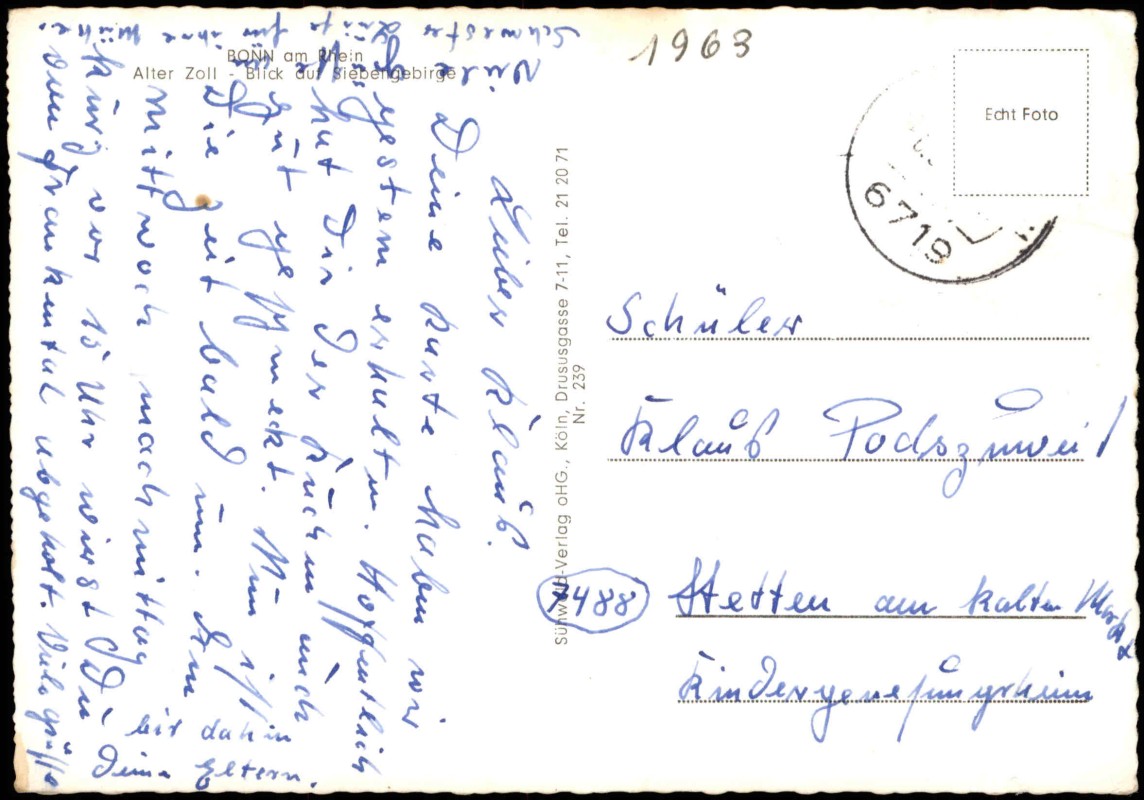 1963
BONN am Rhein
Alter Zoll - Blick auf Siebengebirge
Echt Foto
6719
Sünwald-Verlag oHG., Köln, Drususgasse 7-11, Tel. 21 20 71
Nr. 239
Lieber Klauß.
Deine Karte haben wir
gestern erhalten. Hoffentlich
hat Dir der Kuchen auch
gut geschmeckt. Nun ist
Die Zeit bald um. Am
Mittwoch nachmittag
kurz vor 15 Uhr wirst Du
von Frankental abgeholt. Viele Grüße
bis dahin
Deine Eltern.
Viele Grüße
Schwester für ihre Mühe.
Schüler
Klauß Podszuweit
7488 Stetten am kalten Markt
Kindergenesungsheim